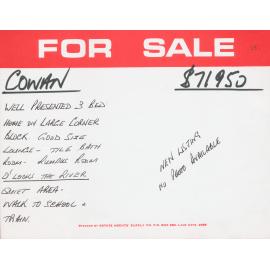 FOR SALE
COWAN
$71950
WELL PRESENTED 3 BED
HOME ON LARGE CORNER
BLOCK GOOD SIZE
LOUNGE - TILE BATH
ROOM - RUMPUS ROOM
O'LOOKS THE RIVER
QUIET AREA -
WALK TO SCHOOL &
TRAIN.
NEW LISTING
NO PHOTO AVAILABLE